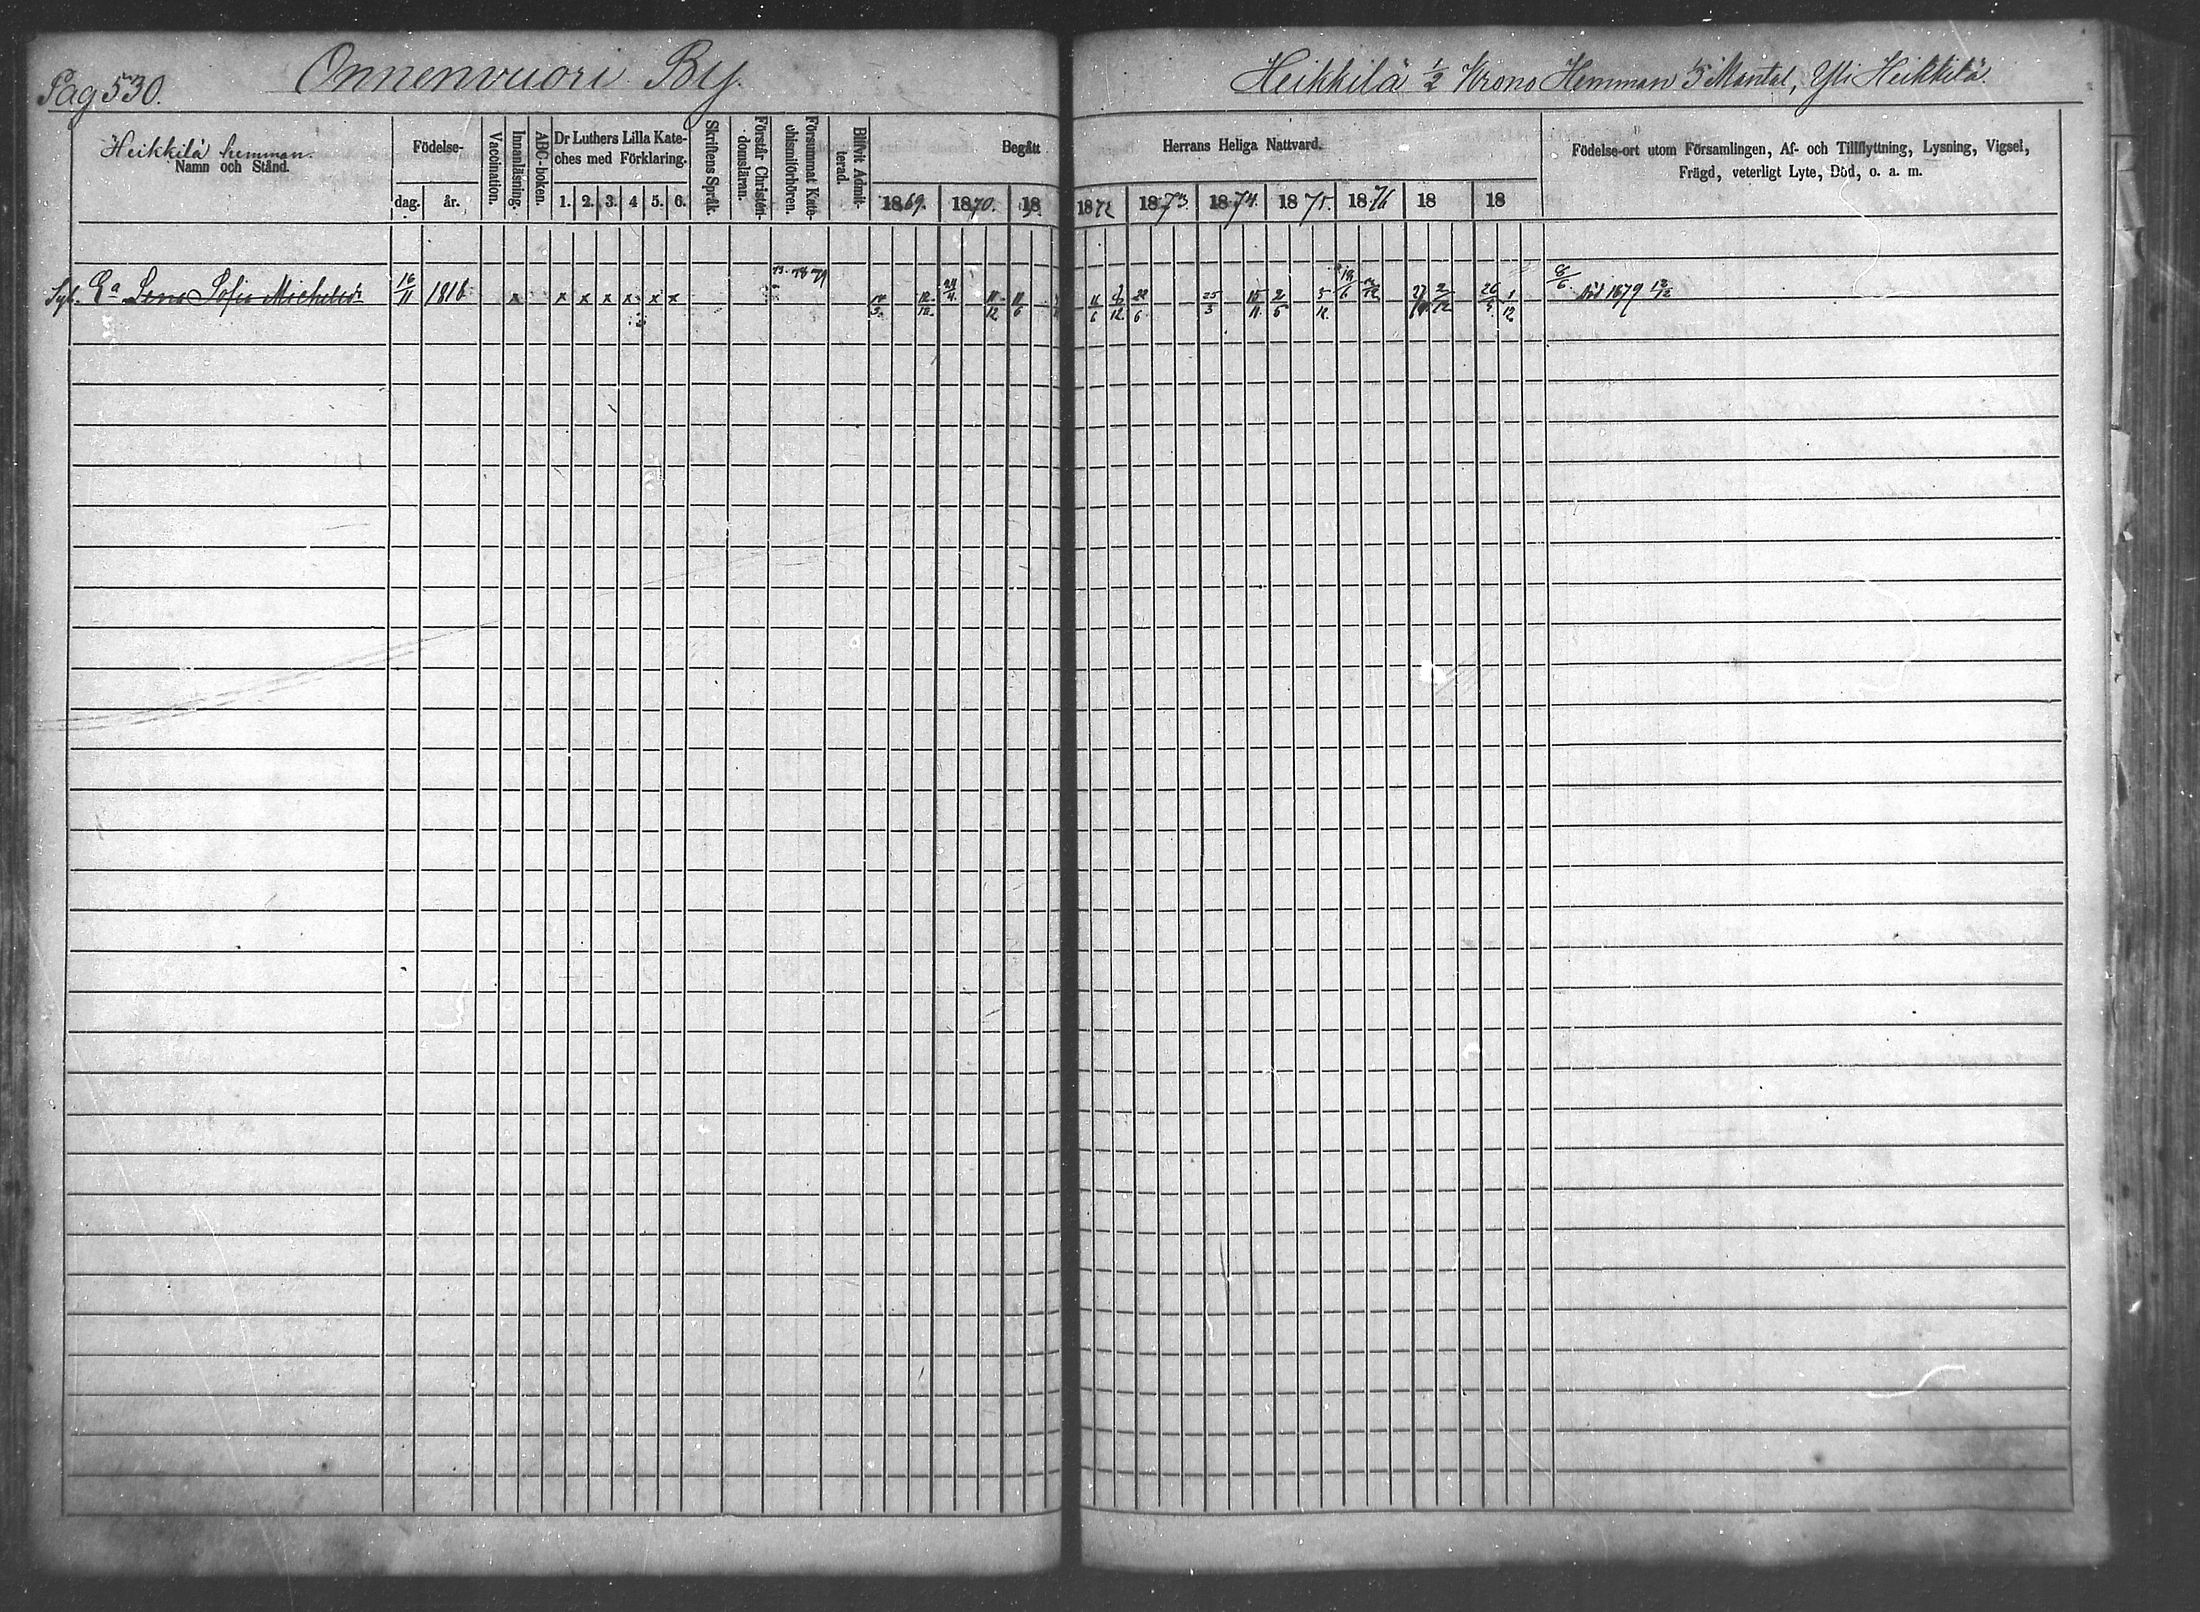 Pag 530. Onnenvuori By. Heikkilä 1/2 Krono Hemman 1/5 Mantal, Yli Heikkilä
Heikkilä hemman.
Namn och Stånd.
Födelse-
dag. år.
Vaccination.
Innanläsning.
ABC-boken.
Dr Luthers Lilla Kate-
ches med Förklaring.
1. 2. 3. 4 5. 6.
Skriftens Språk.
Förstår Christen-
domsläran.
Försummat Kate-
chismiförhören.
Blifvit Admit-
terad.
Begått Herrans Heliga Nattvard.
1869. 1870. 18 1872 1873. 1874. 1875. 1876 18 18
Födelse-ort utom Församlingen, Af- och Tillflyttning, Lysning, Vigsel,
Frägd, veterligt Lyte, Död, o. a. m.
Eª Lena Sofia Michelsd:r 16/11 1816 x x x x x x x 73. 78 79 24/4 11/12 11/6 11/6 22/6 25/3 2/5 5/12 19/6 2/12 26/5 1/12 8/6 död 1879 12/12